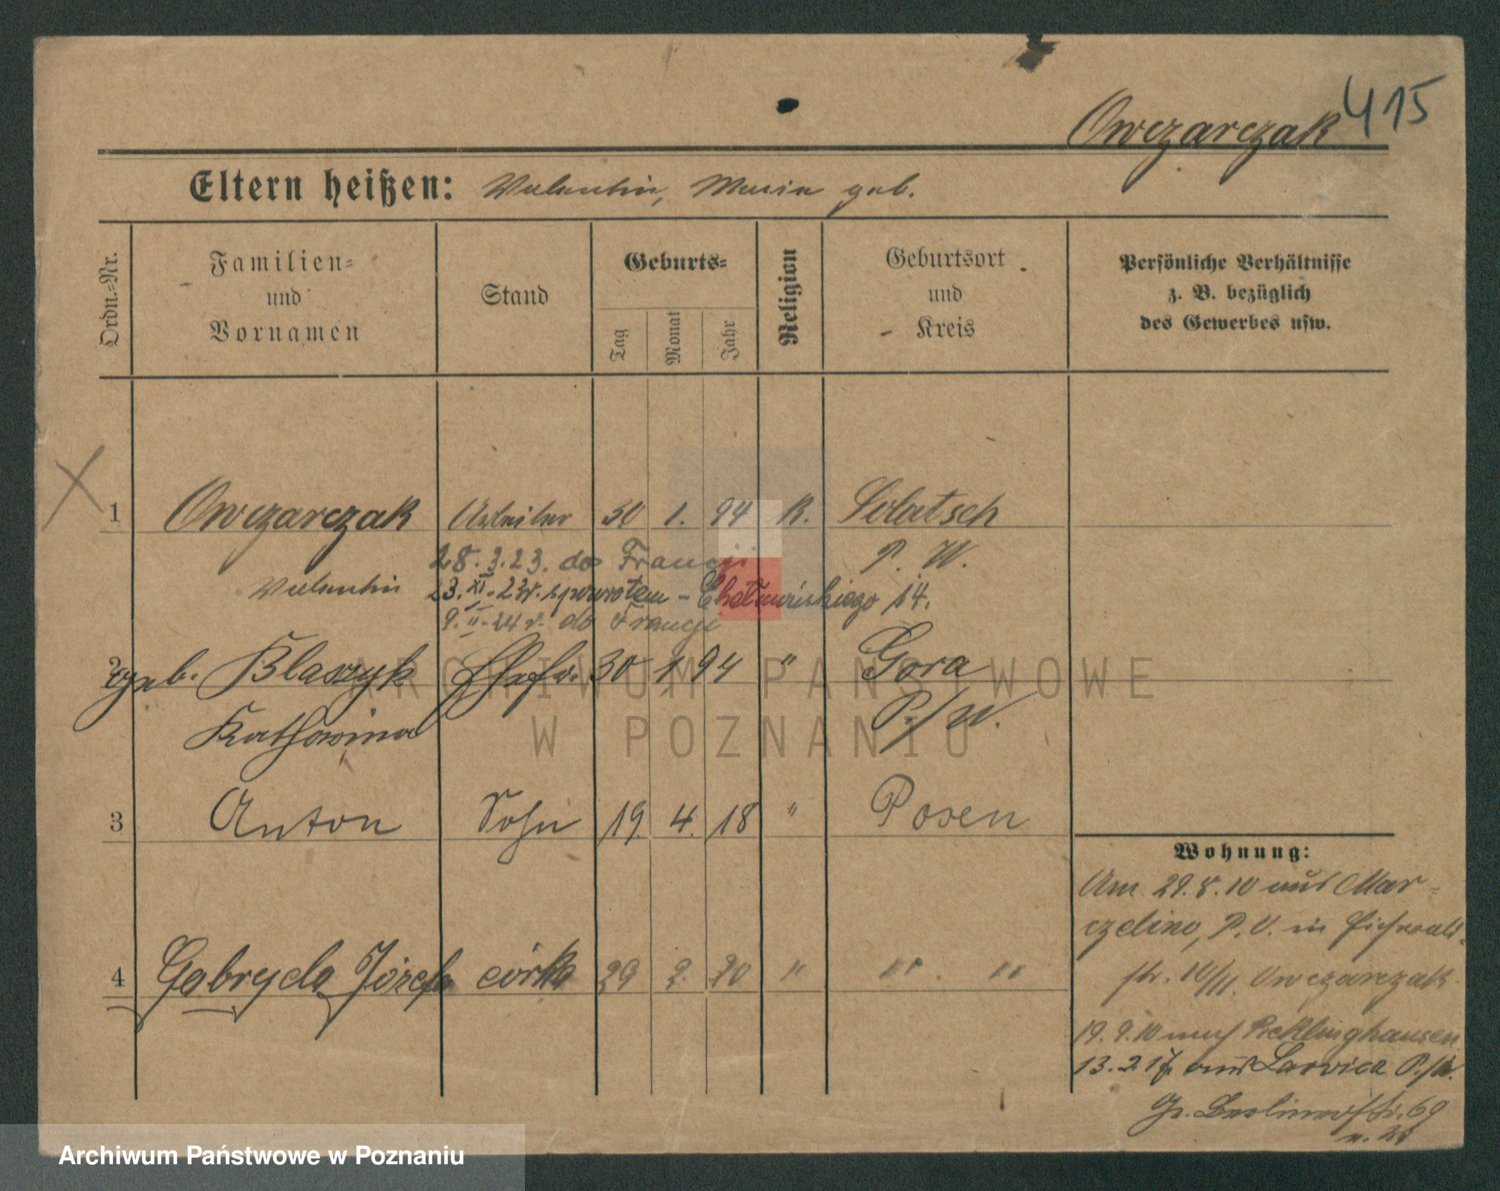 Owczarczak 415
Eltern heißen: Valentin, Maria geb.
Ordn.-Nr.
Familien-
und
Vornamen
Stand
Geburts-
Tag
Monat
Jahr
Religion
Geburtsort
und
Kreis
Persönliche Verhältnisse
z. B. bezüglich
des Gewerbes usw.
1 Owczarczak Arbeiter 30 1. 94 K. Solatsch
28.3.23. do Francji P. W.
Valentin 23.XI.23r. spowrotem - 14.
9.II-24 r. do Francji
2 geb. Blaszyk Ehefr. 30 1 94 " Gora
Katharina P/W.
3 Anton Sohn 19 4. 18 " Posen
Wohnung:
Am 29.8.10 aus Mar-
czelino, P. O. in
4 Gabryela Józefa córka 29 2. 20 " " "
str. 10/11. Owczarczak
19.9.10 nach Recklinghausen
13.2.17 aus Lawica P./W.
Gr. Berlinerstr. 69
ARCHIWUM PAŃSTWOWE
W POZNANIU
Archiwum Państwowe w Poznaniu